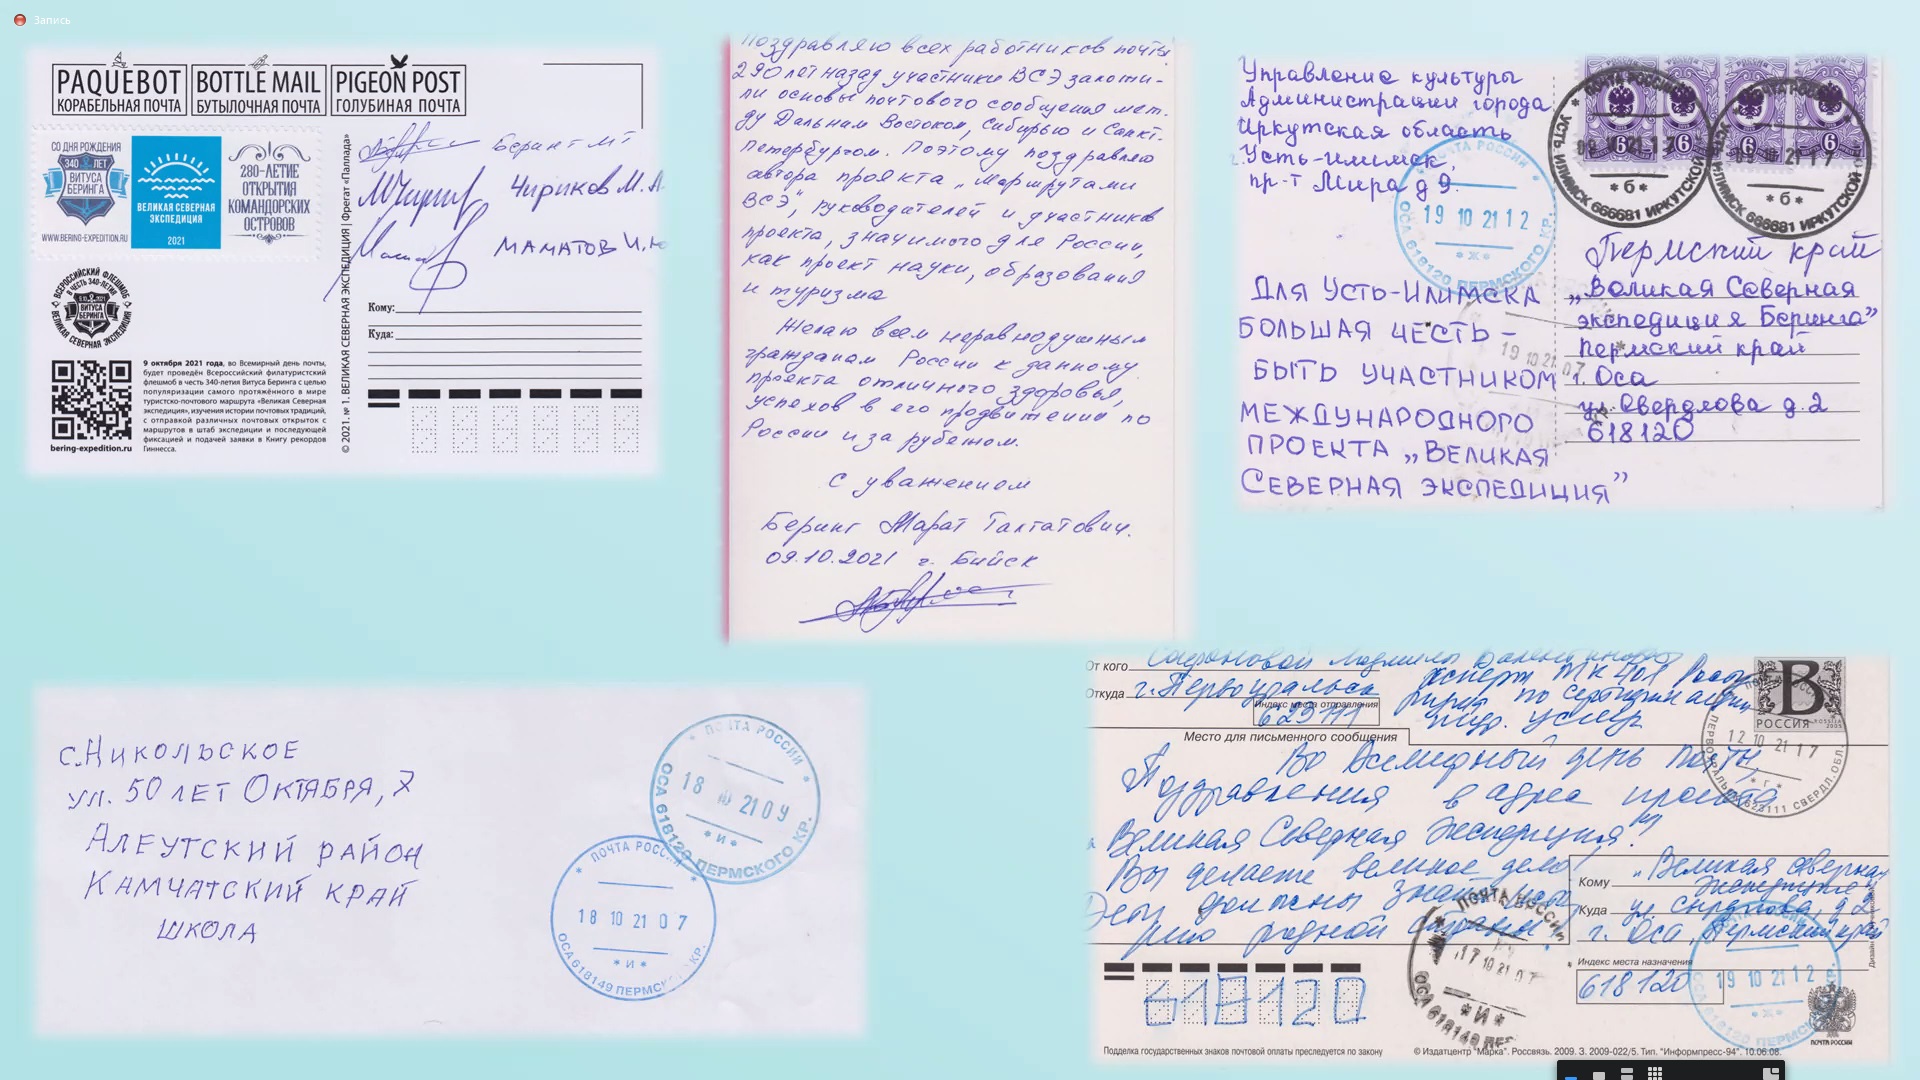 Запись
PAQUEBOT
КОРАБЕЛЬНАЯ ПОЧТА
BOTTLE MAIL
БУТЫЛОЧНАЯ ПОЧТА
PIGEON POST
ГОЛУБИНАЯ ПОЧТА
СО ДНЯ РОЖДЕНИЯ
340 ЛЕТ
ВИТУСА
БЕРИНГА
WWW.BERING-EXPEDITION.RU
ВЕЛИКАЯ СЕВЕРНАЯ
ЭКСПЕДИЦИЯ
2021
280-ЛЕТИЕ
ОТКРЫТИЯ
КОМАНДОРСКИХ
ОСТРОВОВ
Беринг МТ
Чириков М. А
Маматов И.Ю
ВСЕРОССИЙСКИЙ ФЛЕШМОБ
В ЧЕСТЬ 340-ЛЕТИЯ
9.10.2021
ВИТУСА
БЕРИНГА
ВЕЛИКАЯ СЕВЕРНАЯ ЭКСПЕДИЦИЯ
9 октября 2021 года, во Всемирный день почты,
будет проведён Всероссийский филатуристский
флешмоб в честь 340-летия Витуса Беринга с целью
популяризации самого протяжённого в мире
туристско-почтового маршрута «Великая Северная
экспедиция», изучения истории почтовых традиций,
с отправкой различных почтовых открыток с
маршрутов в штаб экспедиции и последующей
фиксацией и подачей заявки в Книгу рекордов
Гиннесса.
bering-expedition.ru
© 2021. № 1. ВЕЛИКАЯ СЕВЕРНАЯ ЭКСПЕДИЦИЯ | Фрегат «Паллада»
Кому:
Куда:
Поздравляю всех работников почты
290 лет назад участники ВСЭ заложи-
ли основы почтового сообщения меж-
ду Дальнам Востоком, Сибирью и Санкт-
Петербургом. Поэтому поздравляю
автора проякта „Маршрутами
ВСЭ", руководителей и участников
проекта, значимого для России,
как проект науки, образования
и туризма
Желаю всем неравнодушным
гражданам России к данному
проекта отличного здоровья,
успехов в его продвижении по
России и за рубежом.
С уважением
Беринг Марат Талгатович.
09.10.2021 г. Бийск
Управление культуры
Администрации города
Иркутская область
г. Усть-Илимск,
пр-т Мира д 9.
ПОЧТА РОССИИ
УСТЬ-ИЛИМСК 666681 ИРКУТСКОЙ
09 21 17
* б *
ПОЧТА РОССИИ
666681 ИРКУТСКОЙ
09 21 17
* б *
6 6 6 6
ПОЧТА РОССИИ
19 10 21 12
ОСА 618120 ПЕРМСКОГО КР.
* Ж *
Для Усть-Илимска
большая честь –
быть участником
международного
проекта „Великая
Северная экспедиция"
19 10 21 07
Пермский край
„Великая Северная
экспедиция Беринга"
Пермский край
г. Оса
ул. Свердлова д. 2
618120
с. Никольское
ул. 50 лет Октября, 7
Алеутский район
Камчатский край
школа
ПОЧТА РОССИИ
18 21 09
* И *
ОСА 618120 ПЕРМСКОГО КР.
ПОЧТА РОССИИ
18 10 21 07
* И *
ОСА 618149 ПЕРМСК КР.
От кого
Людмилы Валентиновны
Откуда г. Первоуральск
эксперт ТК 401
по сертификации
Индекс места отправления
услуг
Место для письменного сообщения
В
РОССИЯ
ROSSIA
2009
12 10 21 17
* г *
ПЕРВОУРАЛЬСК 623111 СВЕРДЛ.ОБЛ.
Во Всемирный день почты,
Поздравления в адрес проекта
Великая Северная Экспедиция!
Вы делаете великое дело
должны знать
родной страны.
Кому „Великая северная
экспедиция"
Куда ул. Свердлова, д 2
г. Оса, Пермский край
Индекс места назначения
618120
ПОЧТА РОССИИ
17 10 21 07
ОСА 618149 ПЕР
* И *
618120
ПОЧТА РОССИИ
19 10 21 12
* Ж *
ОСА 618120 ПЕРМСКОГО КР.
ПОЧТА РОССИИ
Подделка государственных знаков почтовой оплаты преследуется по закону
© Издатцентр "Марка". Россвязь. 2009. З. 2009-022/5. Тип. "Информпресс-94". 10.06.08.